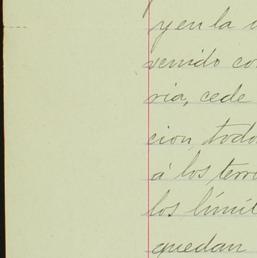 y en la
venido co
ria, cede
cion, todo
á los terri
los límit
quedan